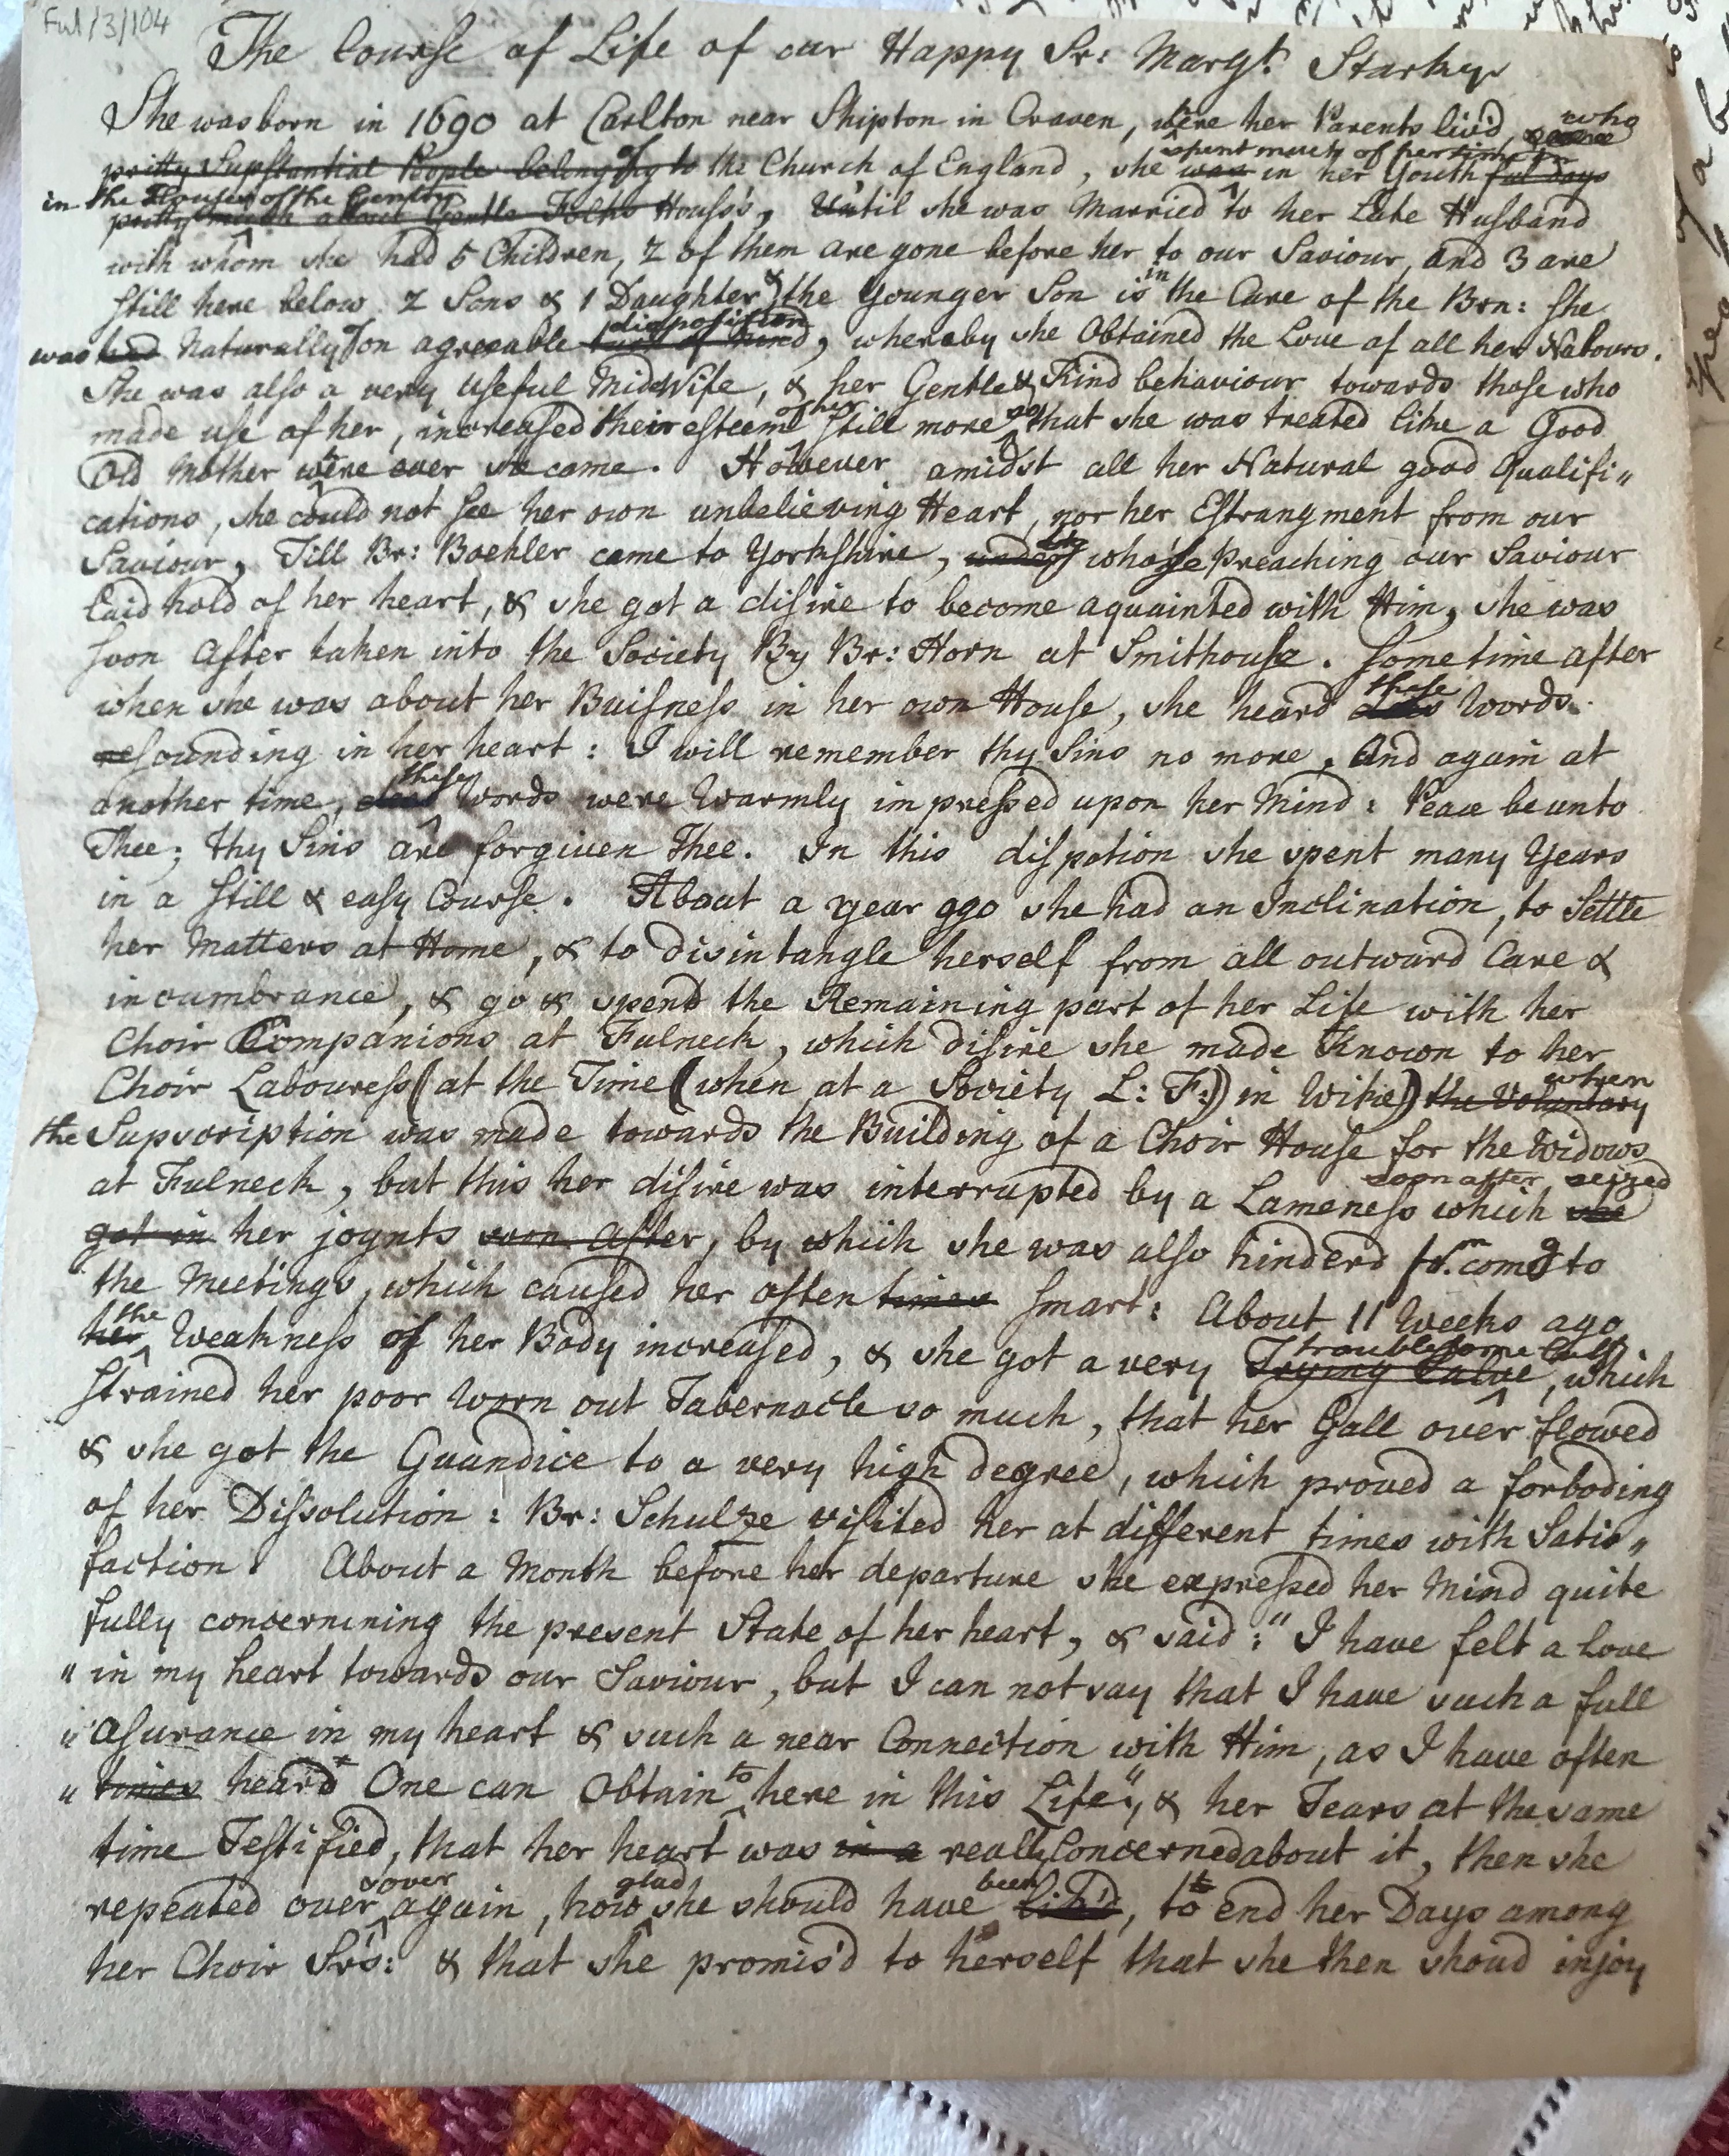 Ful/3/104
The Course of Life of our Happy Sr: Margt. Starkey
She was born in 1690 at Carlton near Skipton in Craven, were her Parents livd, who
pritty Supstantial People belonging to of the Church of England, she was spent much of her time in in her Youth ful days
in the Houses of the Gentry pritty much about Gentle Folks Houses, Until she was Married to her Late Husband
with whom she had 5 Children, 2 of them are gone before her to our Saviour, and 3 are
still here below. 2 Sons & 1 Daughter, & the Younger Son is in the Care of the Brn: She
was had Naturally of on agreeable disposition, whereby she Obtained the Love of all her Nabours.
She was also a very useful MidWife, & her Gentle & Kind behaviour towards those who
made use of her, increased their esteem of her still more so that she was treated like a Good
Old Mother were ever she came. However amidst all her Natural good Qualifi"
cations, she could not see her own unbelieving Heart, nor her Estrangment from our
Saviour, Till Br: Boehler came to Yorkshire, under by whose Preaching our Saviour
laid hold of her heart, & she got a disire to become aquainted with Him, she was
soon After taken into the Society By Br: Horn at Smithouse. Sometime after
when she was about her Buisness in her own House, she heard these Words
resounding in her heart: I will remember thy Sins no more, And again at
another time, these Words were Warmly impressed upon her Mind: Peace be unto
Thee; thy Sins are forgiven Thee. In this dispotion she spent many Years
in a Still & easy Course. About a year ago she had an Inclination, to Settle
her Matters at Home, & to disintangle herself from all outward Care &
incumbrance, & go & spend the Remaining part of her Life with her
Choir Companions at Fulneck, which disire she made Known to her
Choir Labouress (at the Time (when at a Society L: F:) in Wike) the Voluntary when
the Supscription was made towards the Building of a Choir House for the Widows
at Fulneck, but this her disire was interrupted by a Lameness which she soon after seized
got in her joynts soon After, by which she was also hinderd from comg to
the Meetings, which caused her often times Smart: About 11 Weeks ago
her the Weakness of her Body increased, & she got a very Trying troublesome, which
strained her poor Worn out Tabernacle so much, that her Gall over flowed
& she got the Guandice to a very high degree, which proved a forboding
of her Dissolution: Br: Schulze visited her at different times with Satis"
faction. About a Month before her departure she expressed her Mind quite
fully concernining the present State of her heart, & said: "I have felt a Love
" in my heart towards our Saviour, but I can not say that I have such a full
" asurance in my heart & such a near Connection with Him, as I have often
" times heard One can Obtain to here in this Life", & her Tears at the same
time Testified, that her heart was in a really Concerned about it, then she
repeated over & over again, how glad she should have been lik'd, to end her Days among
her Choir Srs: & that she promis'd to herself that she then shoud injoy